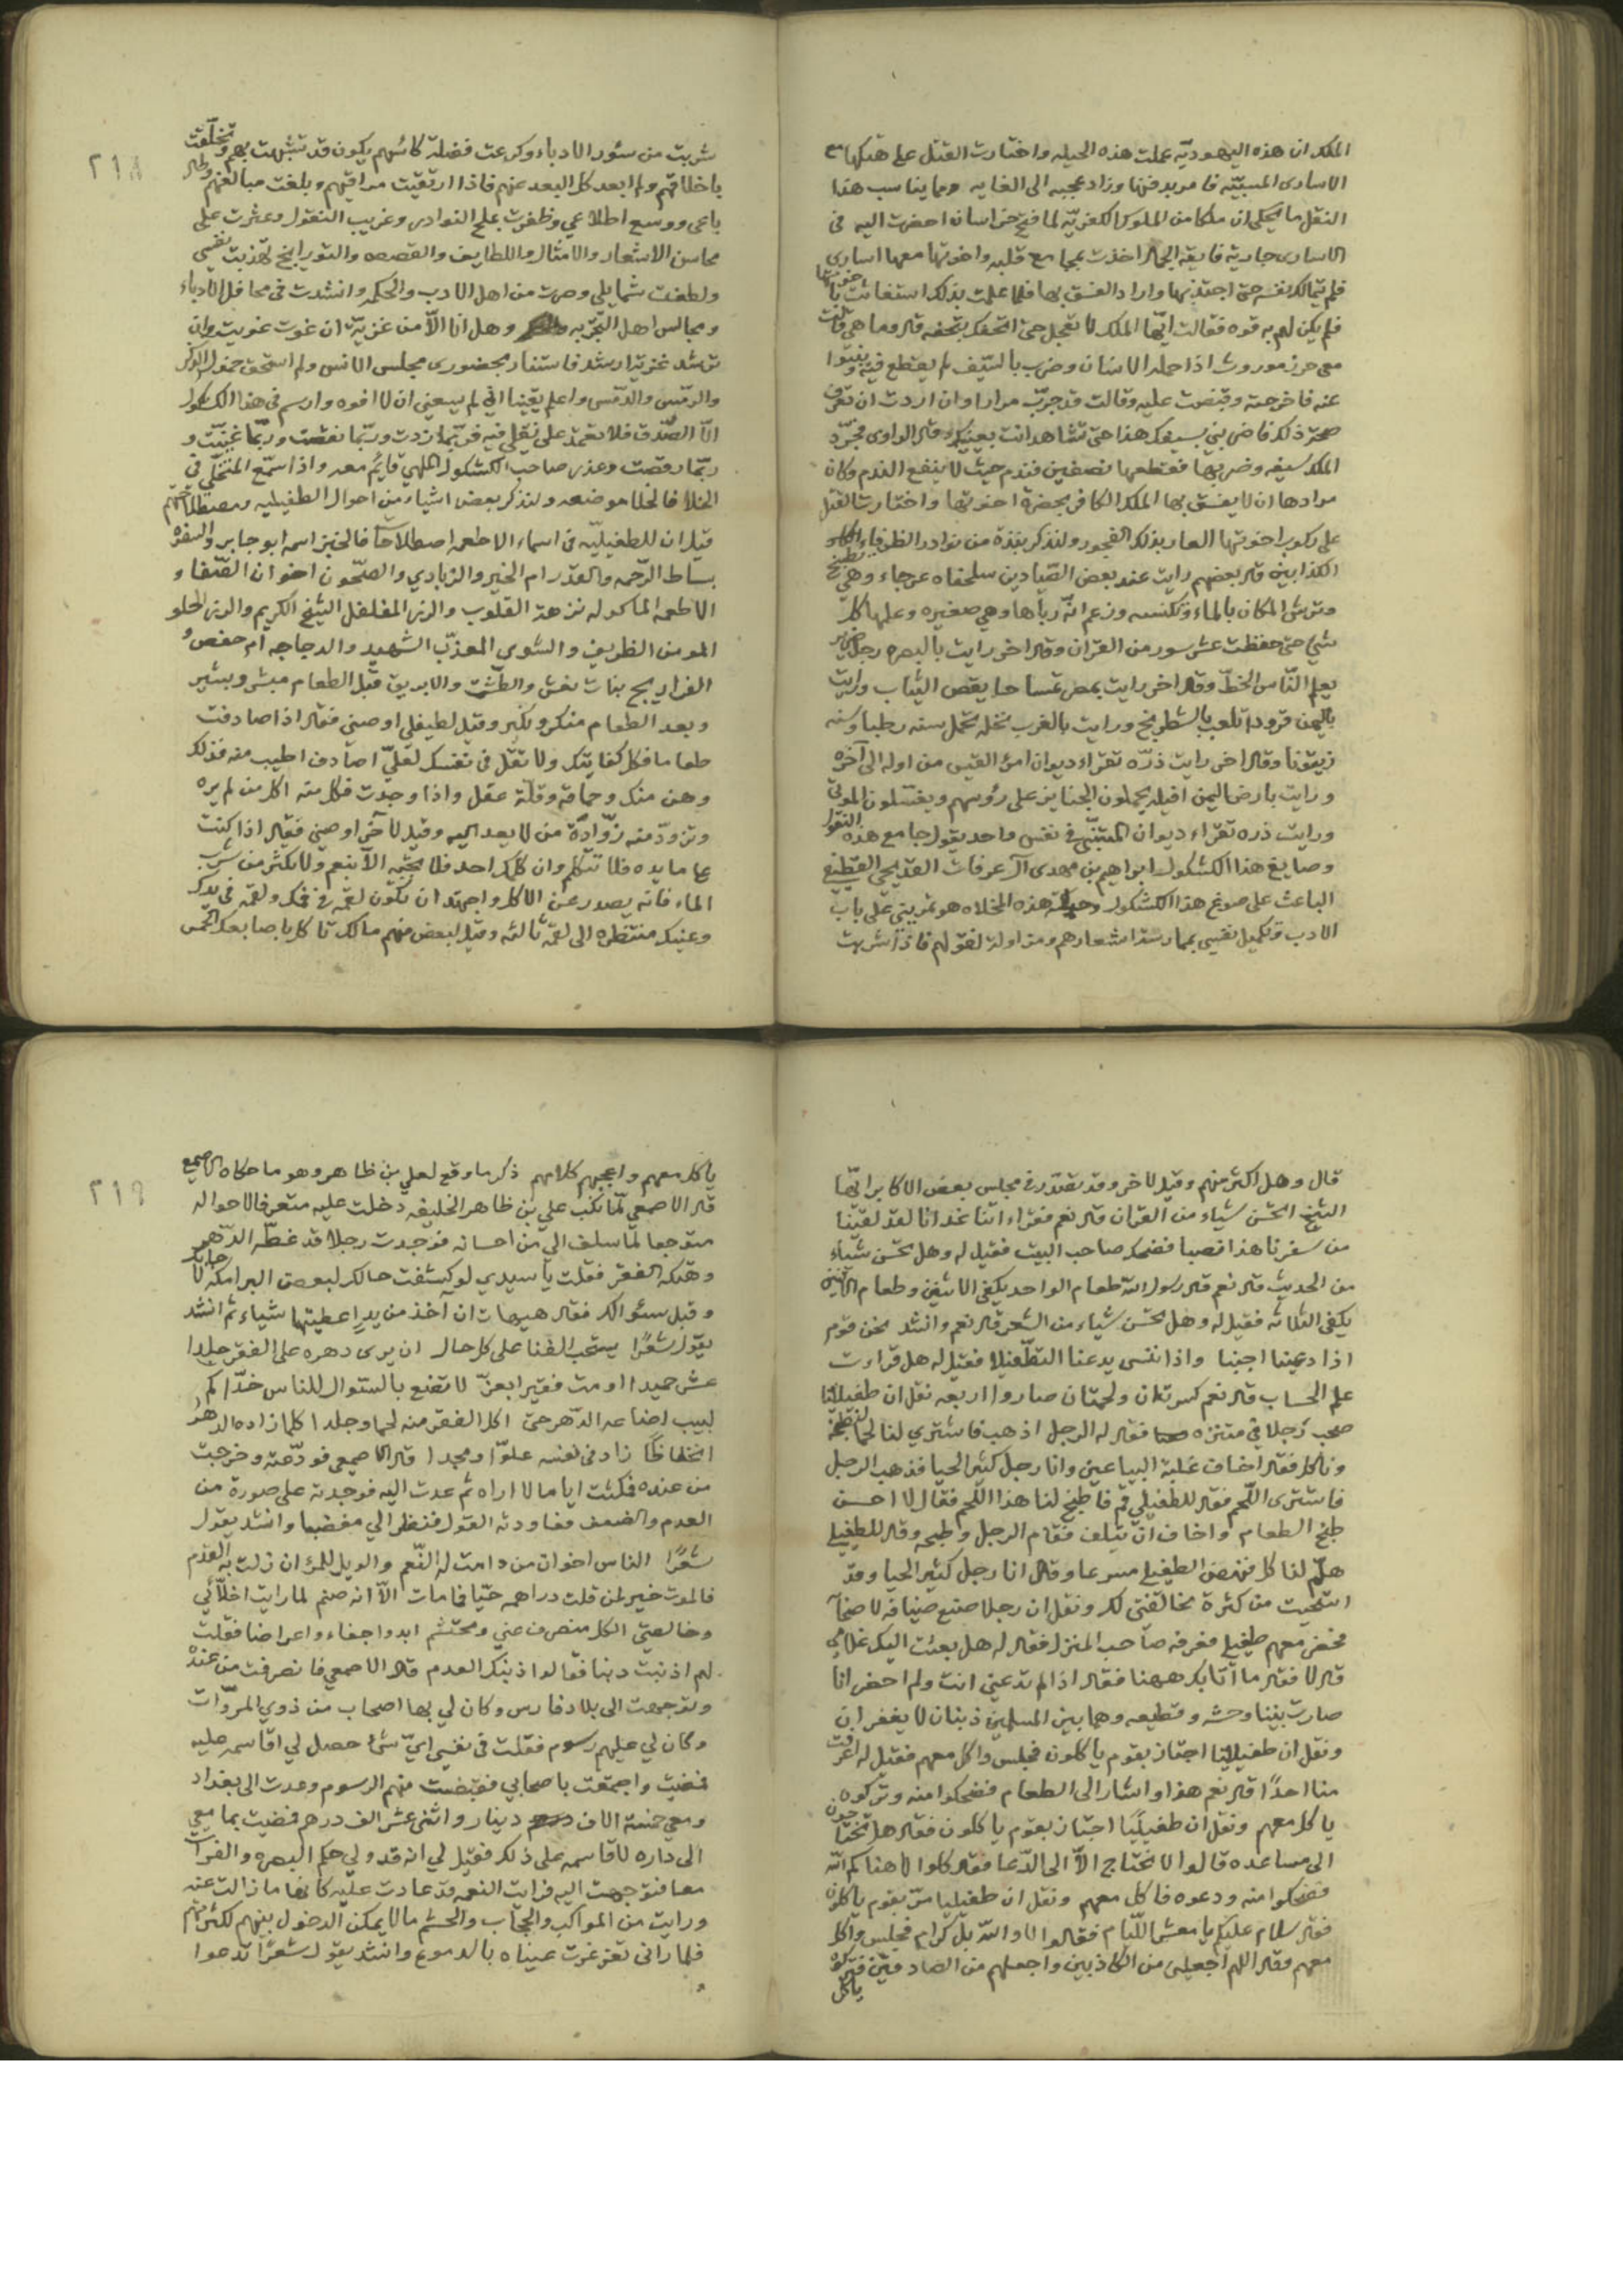 الملك ان هذه اليهوديّه عملت هذه الحيله واختارت القتل على هتكها مع
الاسارى المسبيّه فامر بدفنها وزاد عجبه الى الغايه ومما يناسب هذا
النقل ما يحكى ان ملكا من الملوك الكفريّه لما فتح خراسان احضرت اليه فى
الاسارى جارية فايقة الجمال اخذت بمجامع قلبه واخوتها معها اسارى
فلم يتمالك نفسه حتى اجتذبها واراد الفسق بها فلما علمت بذلك استغاثت باخوتها
فلم يكن لهم به قوه فقالت ايّها الملك لا تعجل حتى اتحفك بتحفه قال وما هى قالت
معى حرز موروث اذا حمله الانسان وضرب بالسّيف لم يقطع فيه
عنه فاخرجته وقبضت عليه وقالت قد جرّب مرارا وان اردت ان تعرف
صحة ذلك فاضربنى بسيفك هذا حتى تشاهد انت بعينك قال الراوى فجرّد
الملك سيفه وضربها فقطعها نصفين فندم حيث لا ينفع الندم وكان
مرادها ان لا يفسق بها الملك الكافر بحضرة اخوتها واختارت القتل
على ركوب اخوتها العار بذلك الفجور ولنذكر نبذة من نوادر الظرفاء
الكذابين قال بعضهم رايت عند بعض الصّيادين سلحفاه عرجاء وهى تطبخ
وترش المكان بالماء وتكنسه وزعم انّه ربّاها وهى صغيره وعلمها كل
شىء حتى حفظت عشر سور من القران وقال اخر رايت بالبصره رجل ضرير
يعلم النّاس الخطّ وقال اخر رايت بمصر تمساحا يقص الثياب ورايت
باليمن قرودا تلعب بالشطرنج ورايت بالغرب نخله تحمل سنه رطبا وسنه
زيتونا وقال اخر رايت ذرّه تقراء ديوان امرؤ القيس من اوله الى آخره
ورايت بارض اليمن افيله يحملون الجنايز على رؤسهم ويغسلون الموتى
ورايت ذره تقراء ديوان المتنبّى فى نفس واحد يقول جامع هذه النقول
وصايغ هذا الكشكول ابراهيم بن مهدى آل عرفات القديحى القطيفى
الباعث على صوغ هذا الكشكول وحياكة هذه المخلاه هو تمرينى على باب
الادب وتكميل نفسى بممارسة اشعارهم ومزاولة نقولهم فاذا شربت
شربت من سئور الادباء وكرعت فضلة كائسهم يكون قد تشبّهت بهم وتخلّقت
باخلاقهم ولم ابعد كل البعد عنهم فاذا ارتقيت مراقيهم وبلغت مبالغهم وطال
باعى ووسع اطلاعي وظفرت بملح النوادر وغريب النقول وعثرت على
محاسن الاشعار والامثال واللطايف والقصص والتورايخ تهذبت نفسي
ولطفت شمايلي وصرت من اهل الادب والحكمه وانشدت فى محافل الادباء
ومجالس اهل التجربه وهل انا الاّ من غزيّة ان غوت غويت وان
ترشد غزية ارشد فاستفاد بحضورى مجلس الانس ولم استحق
واعلم يقينا انّي لم يسعني ان لا افوه وارسم فى هذا الكشكول
الاّ الصّدق فلا تعتمد على نقلي فيه فربّما زدت وربّما نقصت وربّما غنّيت و
ربّما رقصت وعذر صاحب الكشكول الملهي قايم معه واذا سمّع المتخلّي في
الخلاء فالخلا موضعه ولنذكر بعض اشياء من احوال الطفيليه ومصطلحاتهم
قيل ان للطفيليّه فى اسماء الاطعمه اصطلاحا فالخبز اسمه ابو جابر والسفره
بساط الرّحمه والقدر ام الخير والزبادي والصّحون اخوان الصّفاء
الاطعمه الماكوله نزهة القلوب والرز المفلفل الشيخ الكريم والرز الحلو
المومن الظريف والشوى المعذّب الشهيد والدجاجه ام حفص و
الفراريج بنات نعش والطشت والابريق قبل الطعام مبشر وبشير
وبعد الطعام منكر ونكير وقيل لطيفلي اوصنى فقال اذا صادفت
طعاما فكل كفايتك ولا تقل فى نفسك لعلّي اصادف اطيب منه فذلك
وهن منك وحماقة وقلّة عقل واذا وجدت فكل منه اكل من لم يره
وتزودّ منه زوّادة من لا يعد اليه وقيل لآخر اوصنى فقال اذا كنت
على مايده فلا تتكلم وان كلّمك احد فلا تجبه الاّ بنعم ولا تكثر من شرب
الماء فانه يصدر عن الاكل واجتهد ان تكون لقمة فى فمك ولقمه فى يدك
وعينك منتظره الى لقمة ثالثه وقيل لبعض منهم مالك تاكل باصابعك الخمس
٢١٨
قال وهل اكثر منهم وقيل لاخر وقد تصدّر فى مجلس بعض الاكابر ايّها
الشيخ اتحسن شياء من القران قال نعم فقراء اتنا غدانا لقد لقينا
من سفرنا هذا نصبا فضحك صاحب البيت فقيل له وهل تحسن شياء
من الحديث قال نعم قال رسول اللّه طعام الواحد يكفى الاثنين وطعام الاثنين
يكفى الثلاثه فقيل له وهل تحسن شياء من الشعر قال نعم وانشد نحن قوم
اذا دعينا اجبنا واذا ننسى يدعنا التطّفيل فقيل له هل قراءت
علم الحساب قال نعم كسرتان ولحمتان صاروا اربعه نقل ان طفيليّا
صحب رجلا فى متنزه فقال له الرجل اذهب فاشتري لنا لحما نطبخه
وناكل فقال اخاف غلبة البياعين وانا رجل كثير الحيا فذهب الرجل
فاشترى اللّحم فقال للطفيلي قم فاطبخ لنا هذا اللّحم فقال لا احسن
طبخ الطعام واخاف ان يتلف فقام الرجل وطبخه وقال للطفيلى
هلّم لنا كل فنهض الطفيلى مسرعا وقال انا رجل كثير الحيا وقد
استحيت من كثرة مخالفتى لك ونقل ان رجلا صنع ضيافه لاصحابه
فحضر معهم طفيلى فعرفه صاحب المنزل فقال له هل بعثت اليك غلامى
قال لا فقال ما أتا بك ههنا فقال اذا لم تدعنى انت ولم احضر انا
صارت بيننا وحشه وقطيعه وهما بين المسلمين ذنبان لا يغفران
ونقل ان طفيليّا اجتاز بقوم ياكلون فجلس واكل معهم فقيل له اعرفت
منا احدًا قال نعم هذا واشار الى الطعام فضحكوا منه وتركوه
ياكل معهم ونقل ان طفيليًّا اجتاز بقوم ياكلون فقال هل تحتاجون
الى مساعده قالوا لا نحتاج الاّ الى الدّعا فقال كلوا لا هناكم اللّه
فضحكوا منه ودعوه فاكل معهم ونقل ان طفيليا مرّ بقوم ياكلون
فقال سلام عليكم يا معشر اللّئام فقالوا لا واللّه بل كرام فجلس واكل
معهم وقال اللهم اجعلنى من الكاذبين واجعلهم من الصادقين فتركوه
ياكل
ياكل معهم واعجبهم كلامهم ذكر ما وقع لعلي بن ظاهر وهو ما حكاه الاصمعي
قال الاصمعي لمّا نكب علي بن ظاهر الخليفه دخلت عليه متعرفا لاحواله
متوجعا لما سلف الي من احسانه فوجدت رجلا قد غطّه الدّهر
وهتكه الفقر فقلت يا سيدي لو كشفت حالك لبعض البرامكه لاجابك
وقبل سئوالك فقال هيهات ان آخذ من يدٍ اعطيتها شياء ثم انشد
يقول شعرًا يستحب الفنا على كل حال ان يرى دهره على الفقر جلدا
عش حميدا او مت فقيرا بعزّ لا تقنع بالسّوال للناس خدّا كم
لبيب اضاعه الدّهر حتى اكل الفقر منه لحما وجلدا كلما زاده الدهر
انخفاظا زاد فى نفسه علوّا ومجدا قال الاصمعى فودّعته وخرجت
من عنده فمكثت اياما لا اراه ثم عدت اليه فوجدته على صورة من
العدم والضعف فعاودته القول فنظر الي مغضبا وانشد يقول
شعرًا الناس اخوان من دامت له النّعم والويل للمرء ان زلت به القدم
فالموت خير لمن قلت دراهمه حيّا فامات الاّ انه صنم لما رايت اخلاّئي
وخالصتي الكل منصرف عني ومحتشم ابدوا جفاء واعراضا فقلت
لهم اذنبت دنبا فقالوا ذنبك العدم قال الاصمعي فانصرفت من عنده
وتوجهت الى بلاد فارس وكان لي بها اصحاب من ذوي المروّات
وكان لي عليهم رسوم فقلت فى نفسى ايّ شئ حصل لي اقاسمه عليه
فمضيت واجتمعت باصحابي فقبضت منهم الرسوم وعدت الى بغداد
ومعي خمسة الاف دينار واثنى عشر الف درهم فمضيت بما معي
الى داره لاقاسمه على ذلك فقيل لي انه قد ولي حكم البصره والفرات
معا فتوجهت اليه فرايت النعمه قد عادت عليه كانها ما زالت عنه
ورايت من المواكب والحجّاب والحشم ما لا يمكن الدخول بينهم لكثرتهم
فلما رانى تغرغرت عيناه بالدموع وانشد يقول شعرًا تدعوا
٢١٩